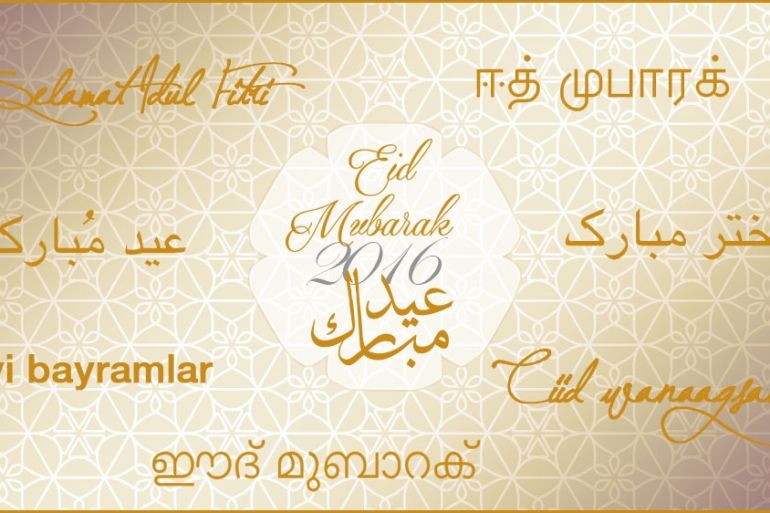 Selamat Idul Fitri
ஈத் முபாரக்
Eid
Mubarak
2016
عيد
مبارك
عید مُبارک
ختر مبارک
yi bayramlar
Ciid wanaagsan
ഈദ് മുബാറക്